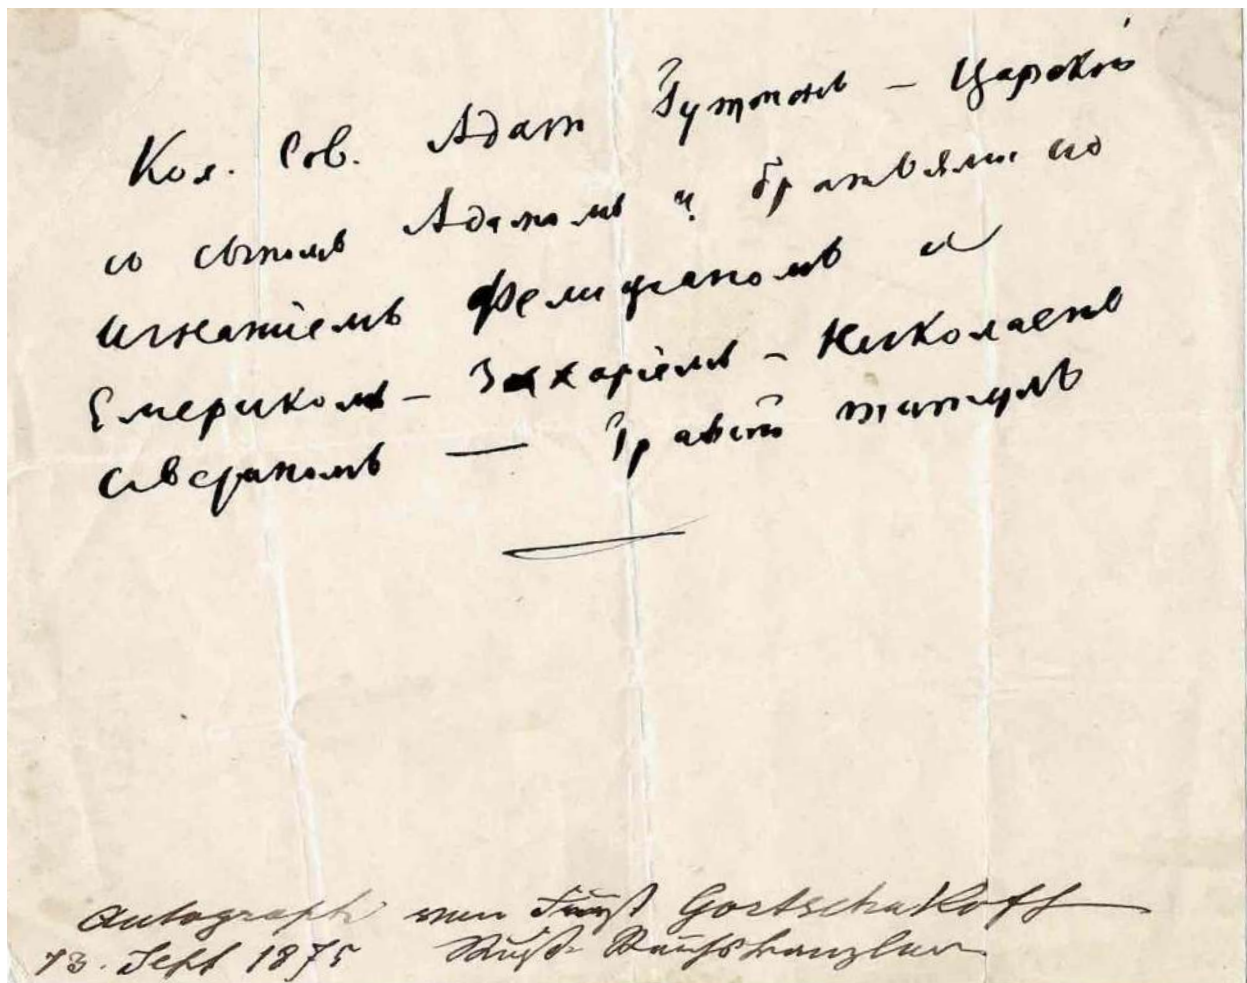 Кол. Сов. Адам Гутонъ – Царской
со сыномъ Адамомъ и братьями со
Игнатіемъ Фелиціаномъ и
Емерикомъ – Захаріемъ – Николаемъ
– Графскій титулъ
Autograph von Fürst Gortschakoff
13. Sept 1875 Russ. Reichskanzler